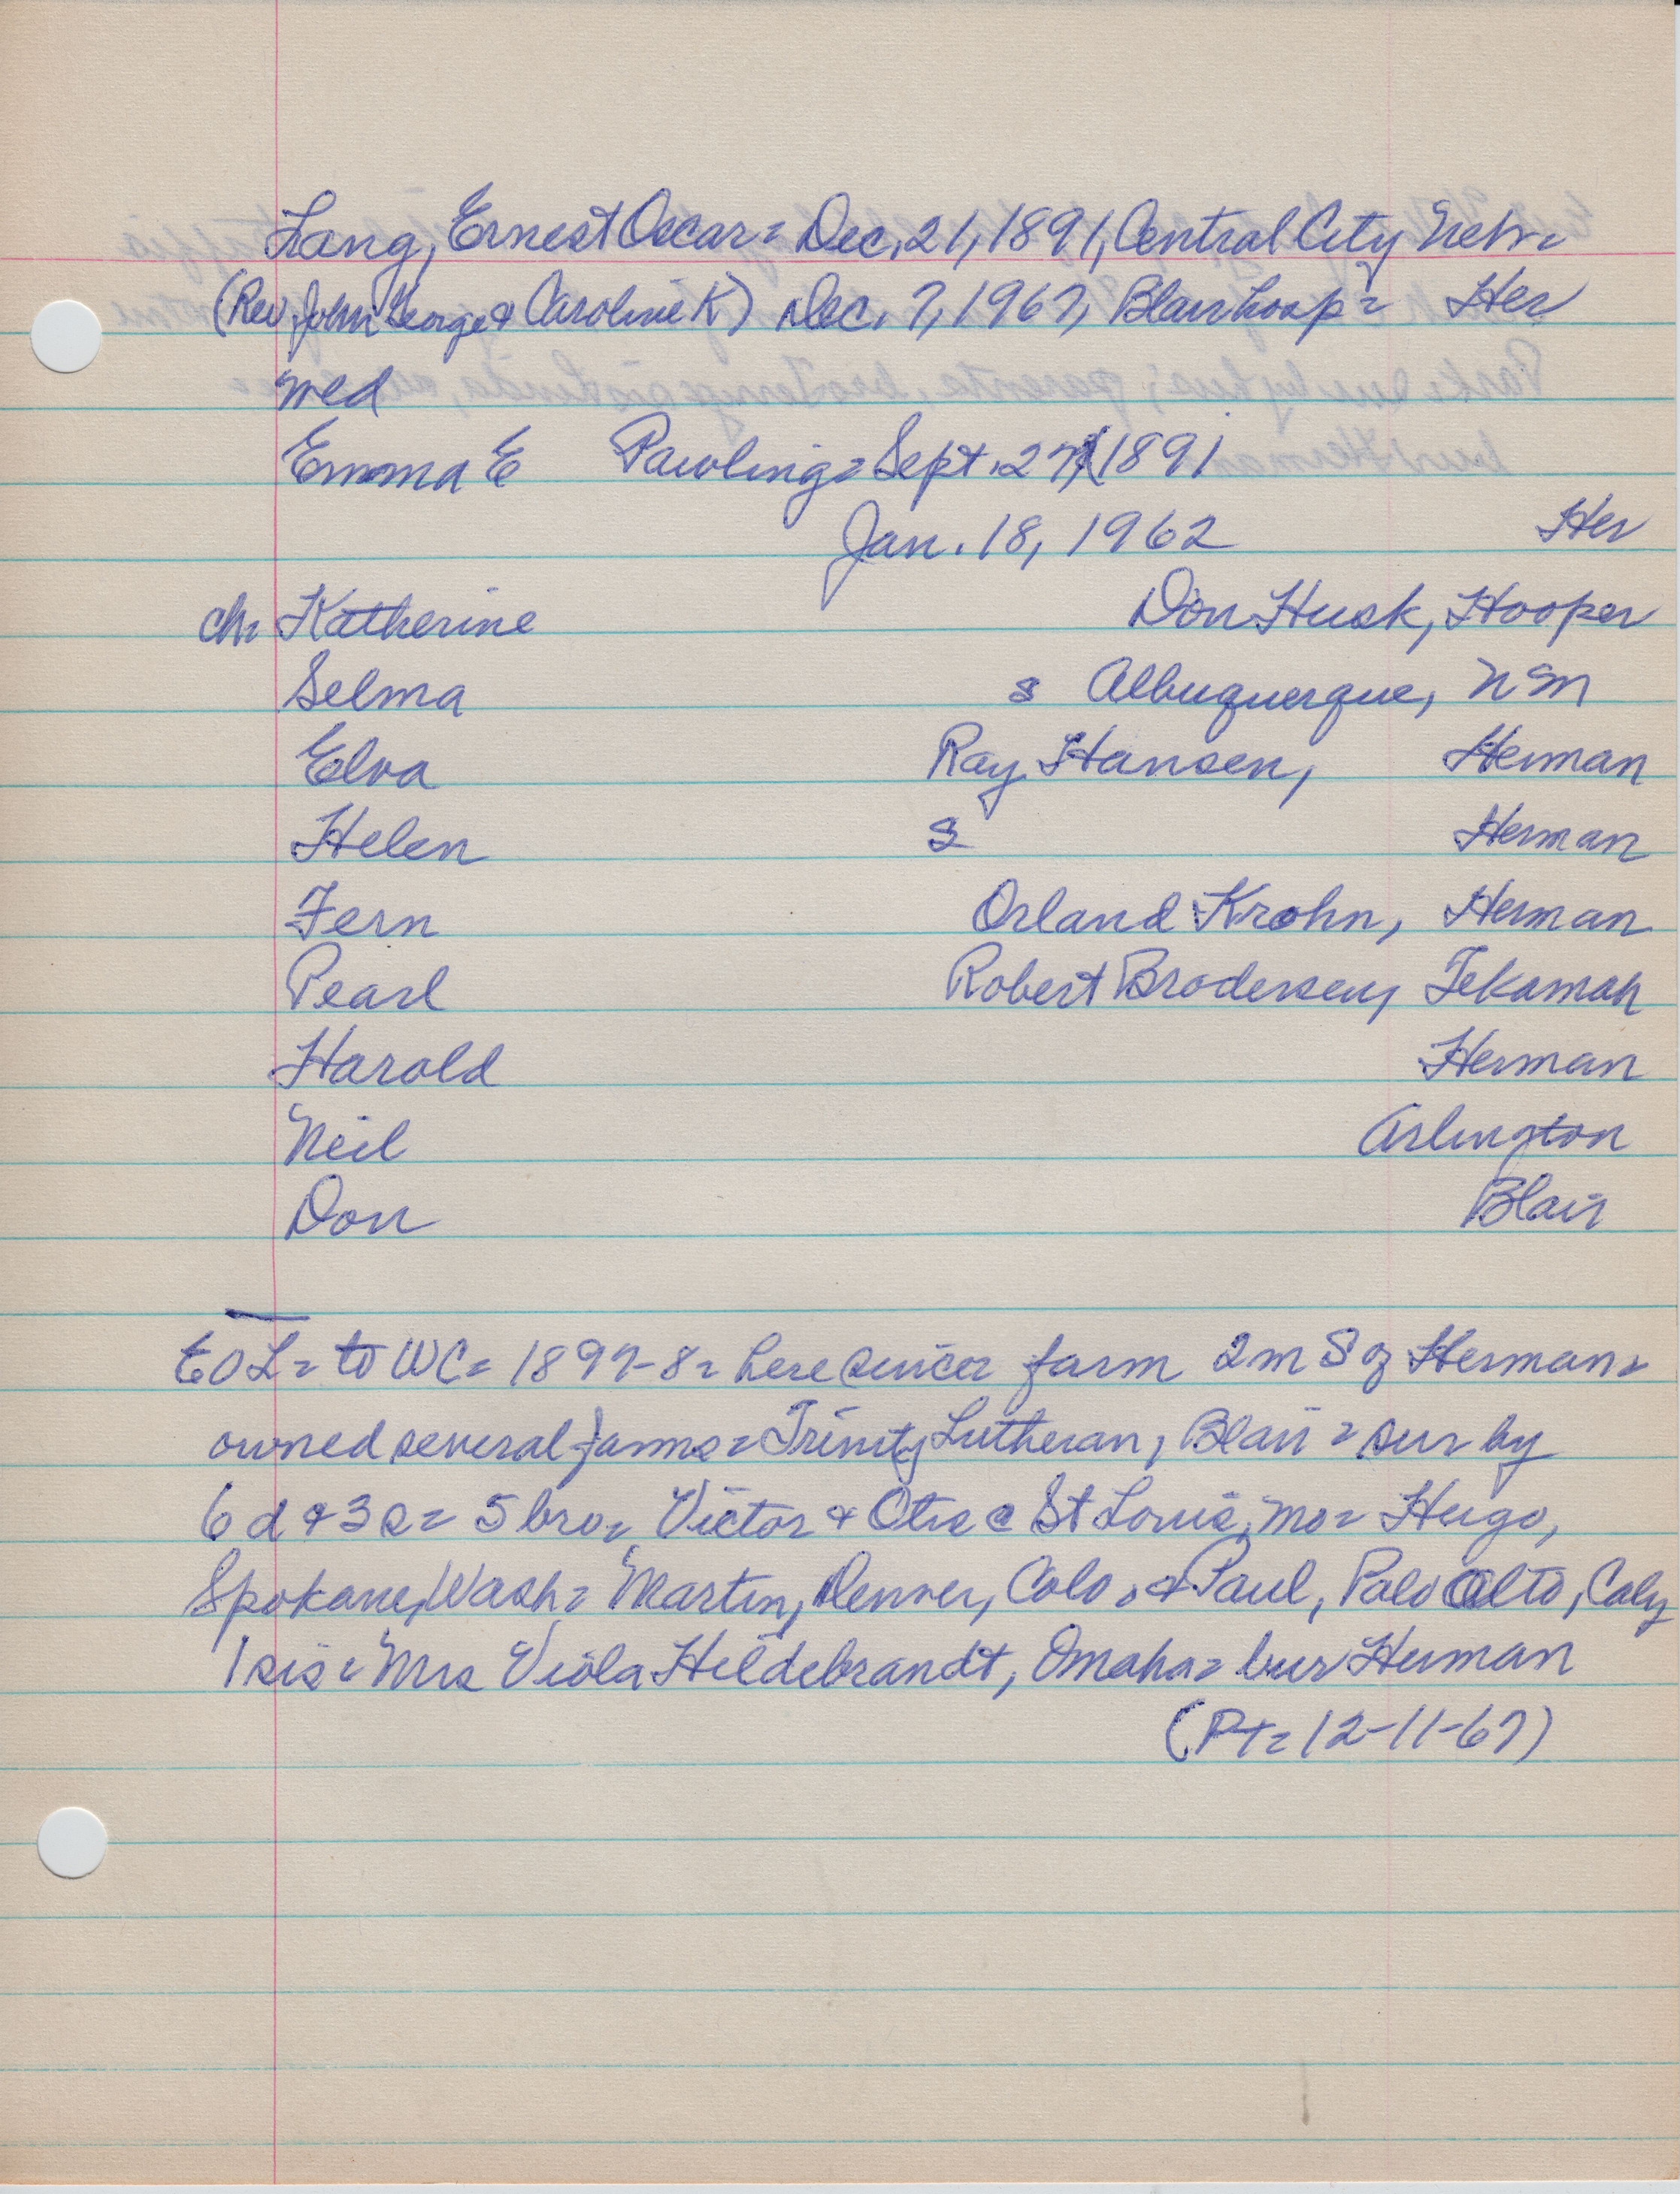 Lang, Ernest Oscar = Dec. 21, 1891, Central City Nebr =
(Rev. John George & Caroline K) Dec. 7, 1967, Blair hosp = Her
wed
Emma E Rawling = Sept. 27, 1891
Jan. 18, 1962 Her
ch = Katherine Don Husk, Hooper
Selma s Albuquerque, N M
Elva Ray Hansen, Herman
Helen s Herman
Fern Orland Krohn, Herman
Pearl Robert Brodersen, Tekamah
Harold Herman
Neil Arlington
Don Blair
EOL = to WC = 1897-8 = here since = farm 2 m S of Herman =
owned several farms = Trinity Lutheran, Blair = sur by
6 d & 3 s = 5 bro = Victor & Otis St Louis, Mo = Hugo,
Spokane, Wash = Martin, Denver, Colo, & Paul, Palo Alto, Calif
1 sis = Mrs Viola Hildebrandt, Omaha = bur Herman
(PT = 12-11-67)